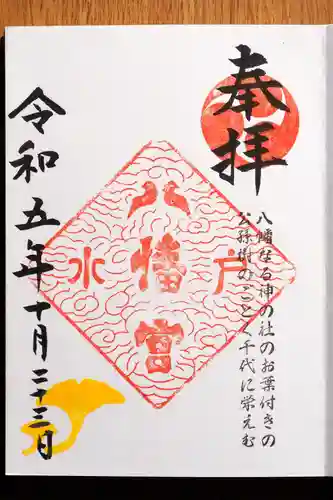 奉拝
八幡なる神の社のお葉付きの
公孫樹のごとく千代に栄えむ
水戸
八幡宮
令和五年十月二十三日